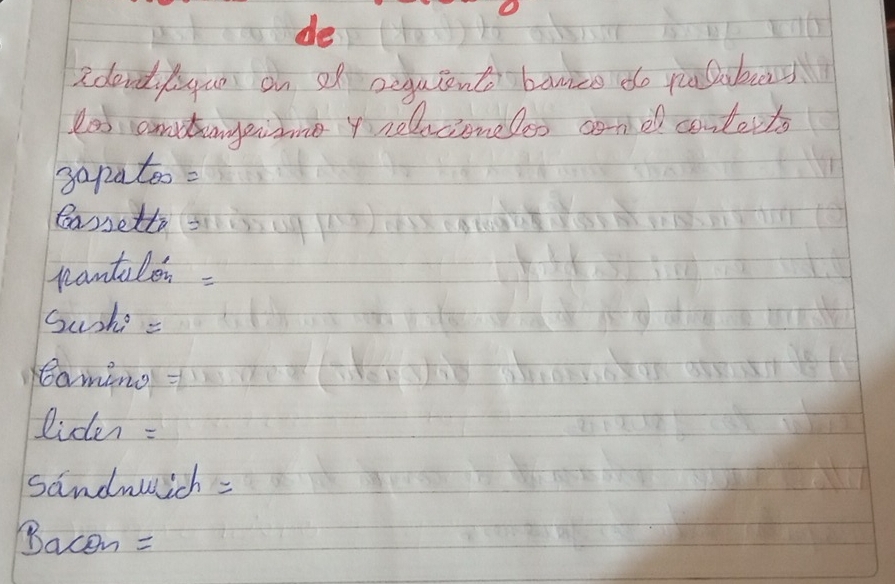 de
identifique en el seguiente banco de palabras
los enxtrangerismo y relacionelos con el contexto
zapatos =
Cassette =
pantalón =
Sushi =
Camino =
lider =
sándnwich =
Bacon =